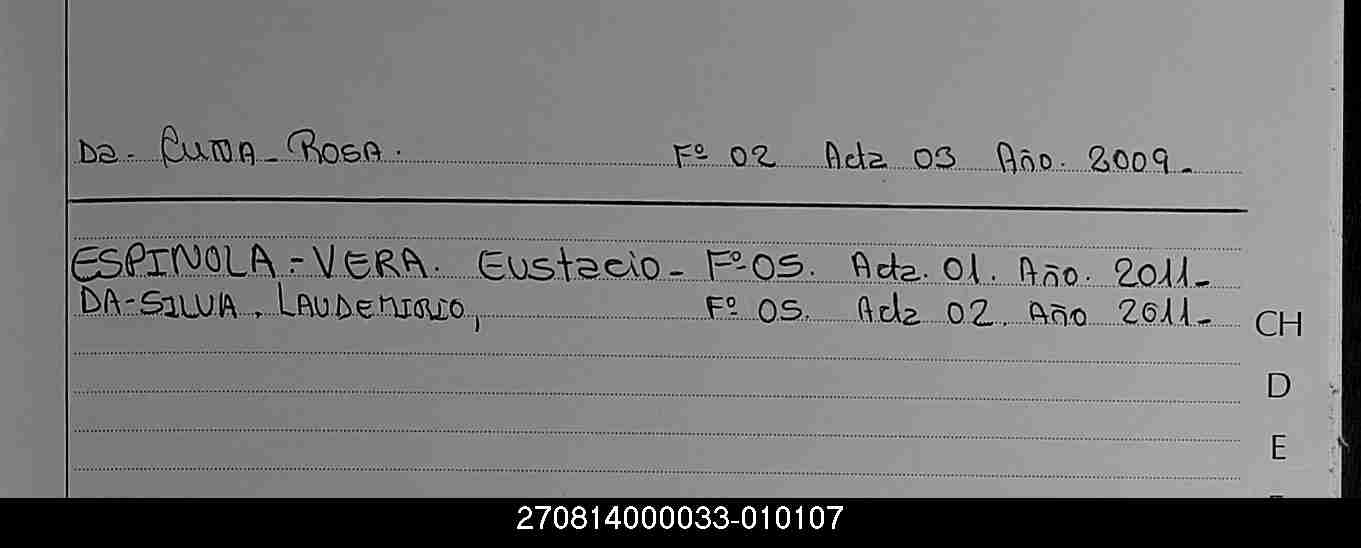 Da. Cuna - Rosa. Fº 02 Acta 03 Año. 2009.-
ESPINOLA - VERA. Eustacio - Fº 05. Acta. 01. Año. 2011.-
DA-SILVA, LAUDEMIRIO, Fº 05. Acta 02. Año 2011.-
CH
D
E
270814000033-010107